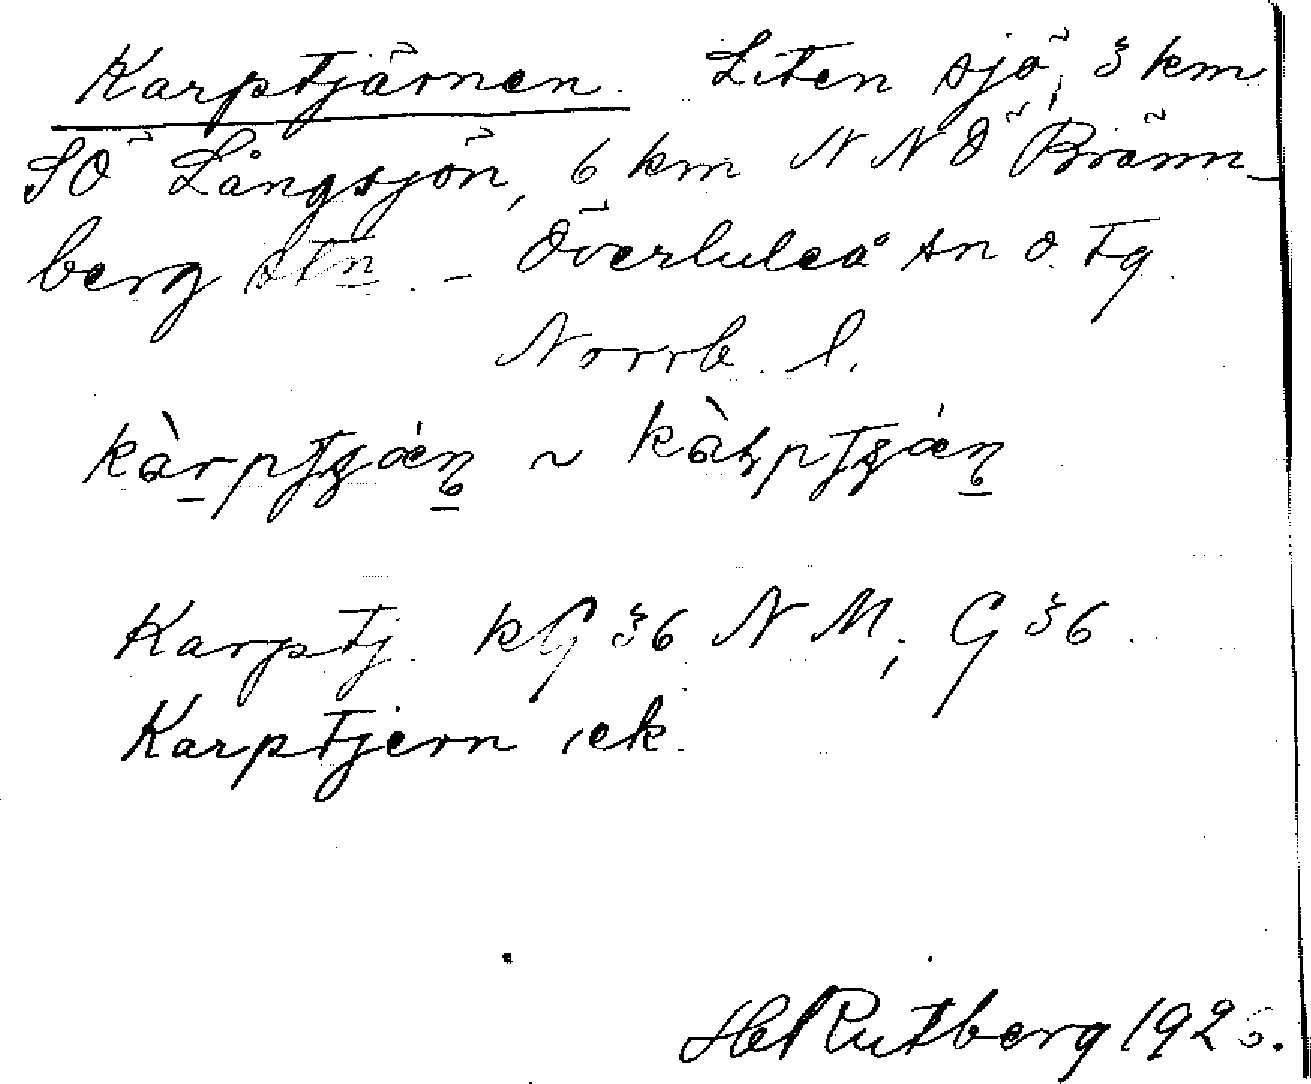 Karptjärnen. Liten sjö, 3 km
SÖ Långsjön, 6 km NNÖ Bränn-
berg stn. - Överluleå sn o. tg.
Norrb. l.
~
Karptj. kG 36 NM; G 36.
Karptjern ek.
Rutberg